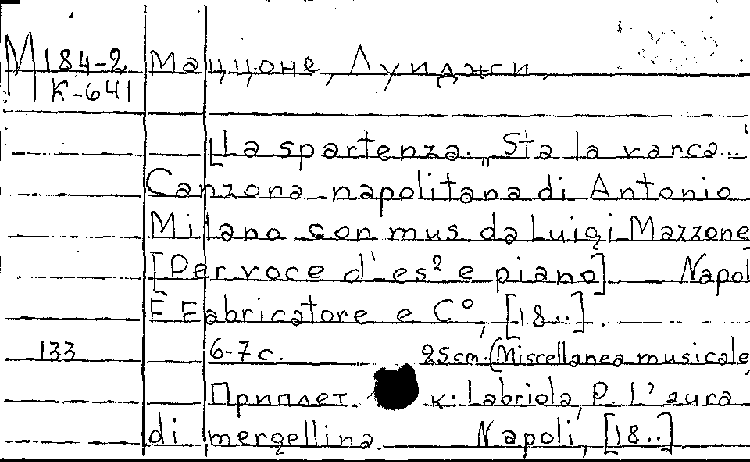 М 184-2 Маццоне, Луиджи.
К-641
[La spartenza. „Sta la varca...
Canzona napolitana di Antonio
Milano con mus da Luigi Mazzone
[Per voce d'es² e piano] Napol
È Fabricatore e C°, [18..].
133 6-7 с. 25 cm. (Miscellanea musicale
Приплет. к: Labriola, P. L'aura
di mergellina. Napoli, [18..]